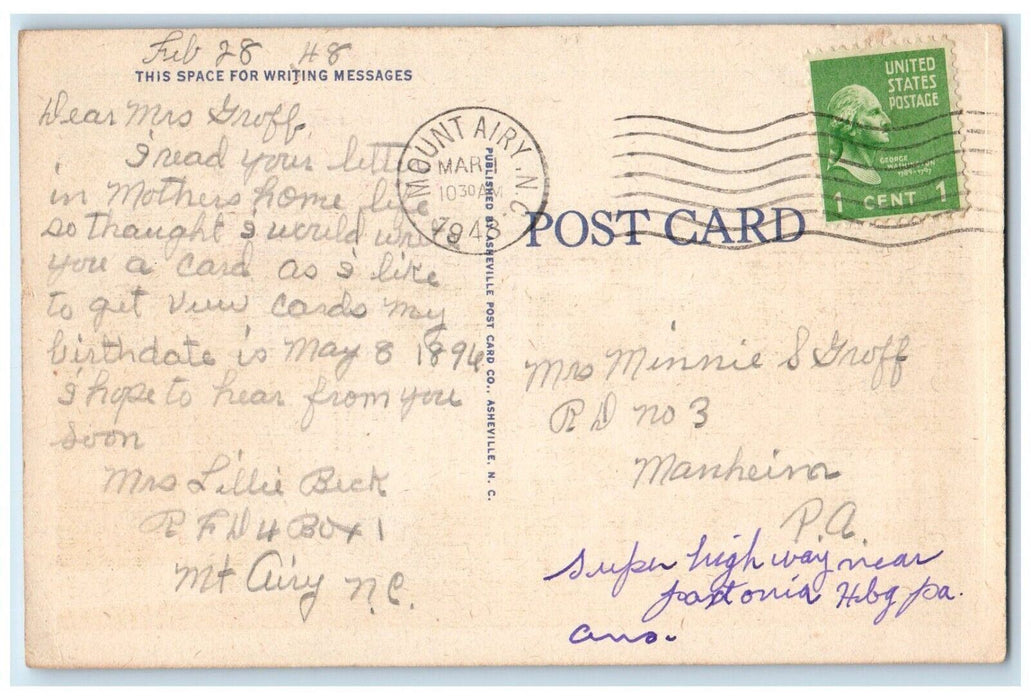 Feb 28 48
THIS SPACE FOR WRITING MESSAGES
Dear Mrs Groff,
I read your letter
in Mothers home life
so thought I would write
you a card as I like
to get view cards my
birthdate is May 8 1894
I hope to hear from you
soon
Mrs Lillie Beck
R F D 4 Box 1
Mt Airy N.C.
PUBLISHED BY ASHEVILLE POST CARD CO., ASHEVILLE, N. C.
MOUNT AIRY, N.C.
MAR 1
10 30 AM
1948
UNITED
STATES
POSTAGE
GEORGE
WASHINGTON
1789-1797
1 CENT 1
POST CARD
Mrs Minnie S Groff
R D no 3
Manheim
P.A.
Super high way near
Hbg pa.
ans.